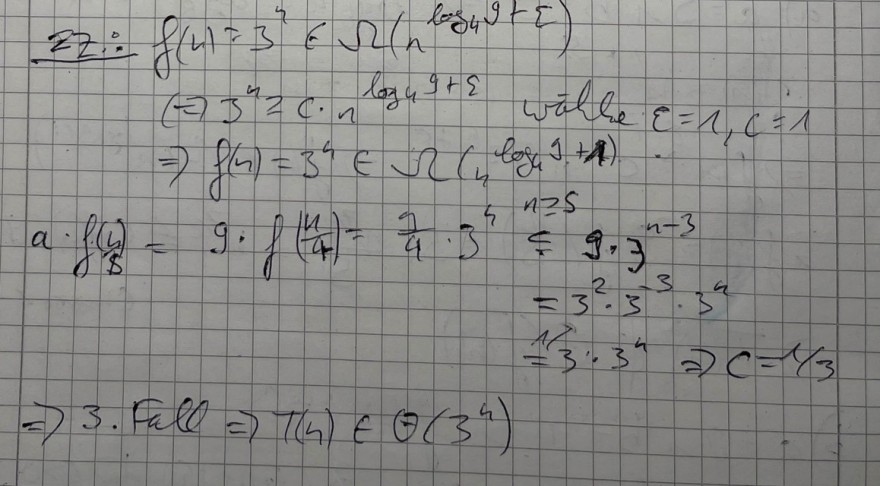 ZZ.: f(n) = 3^n ∈ Ω(n^{log_4 9 + ε})
(=) 3^n ≥ c · n^{log_4 9 + ε} wähle ε = 1, c = 1
⇒ f(n) = 3^n ∈ Ω(n^{log_4 9 + 1})
a · f(n/b) = 9 · f(n/4) = 9/4 · 3^n ≤ 9 · 3^{n-3} n≥5
= 3^2 · 3^{-3} · 3^n
= 1/3 · 3^n ⇒ c = 1/3
⇒ 3. Fall ⇒ T(n) ∈ Θ(3^n)